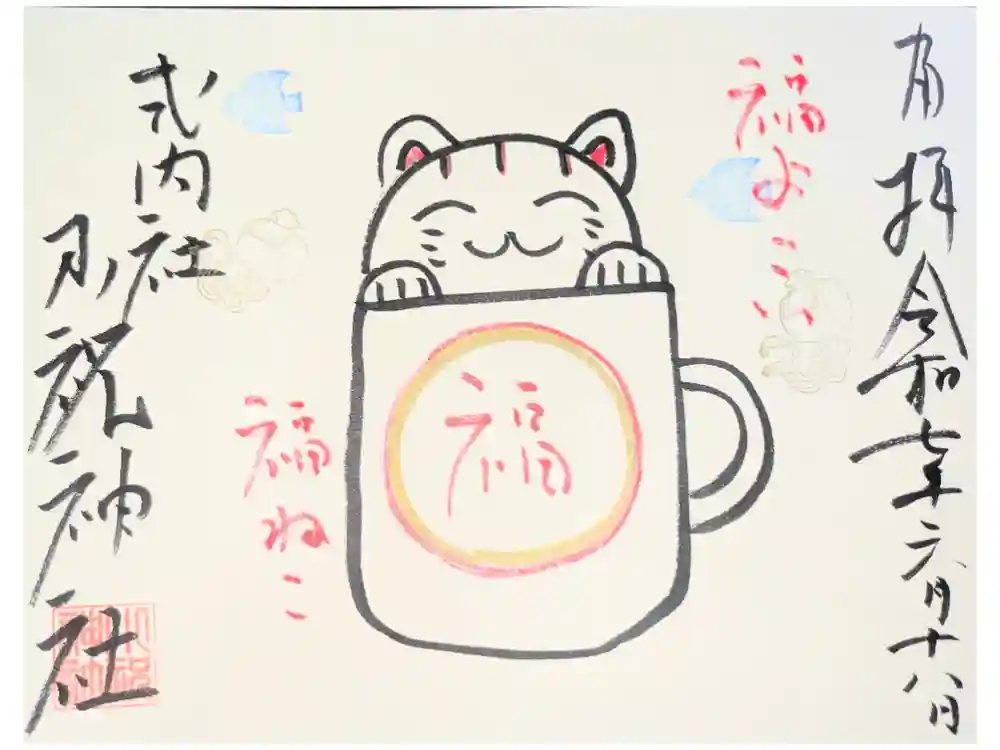 拝 令和七年六月十八日
福よこい
福
福ねこ
式内社
祝神社